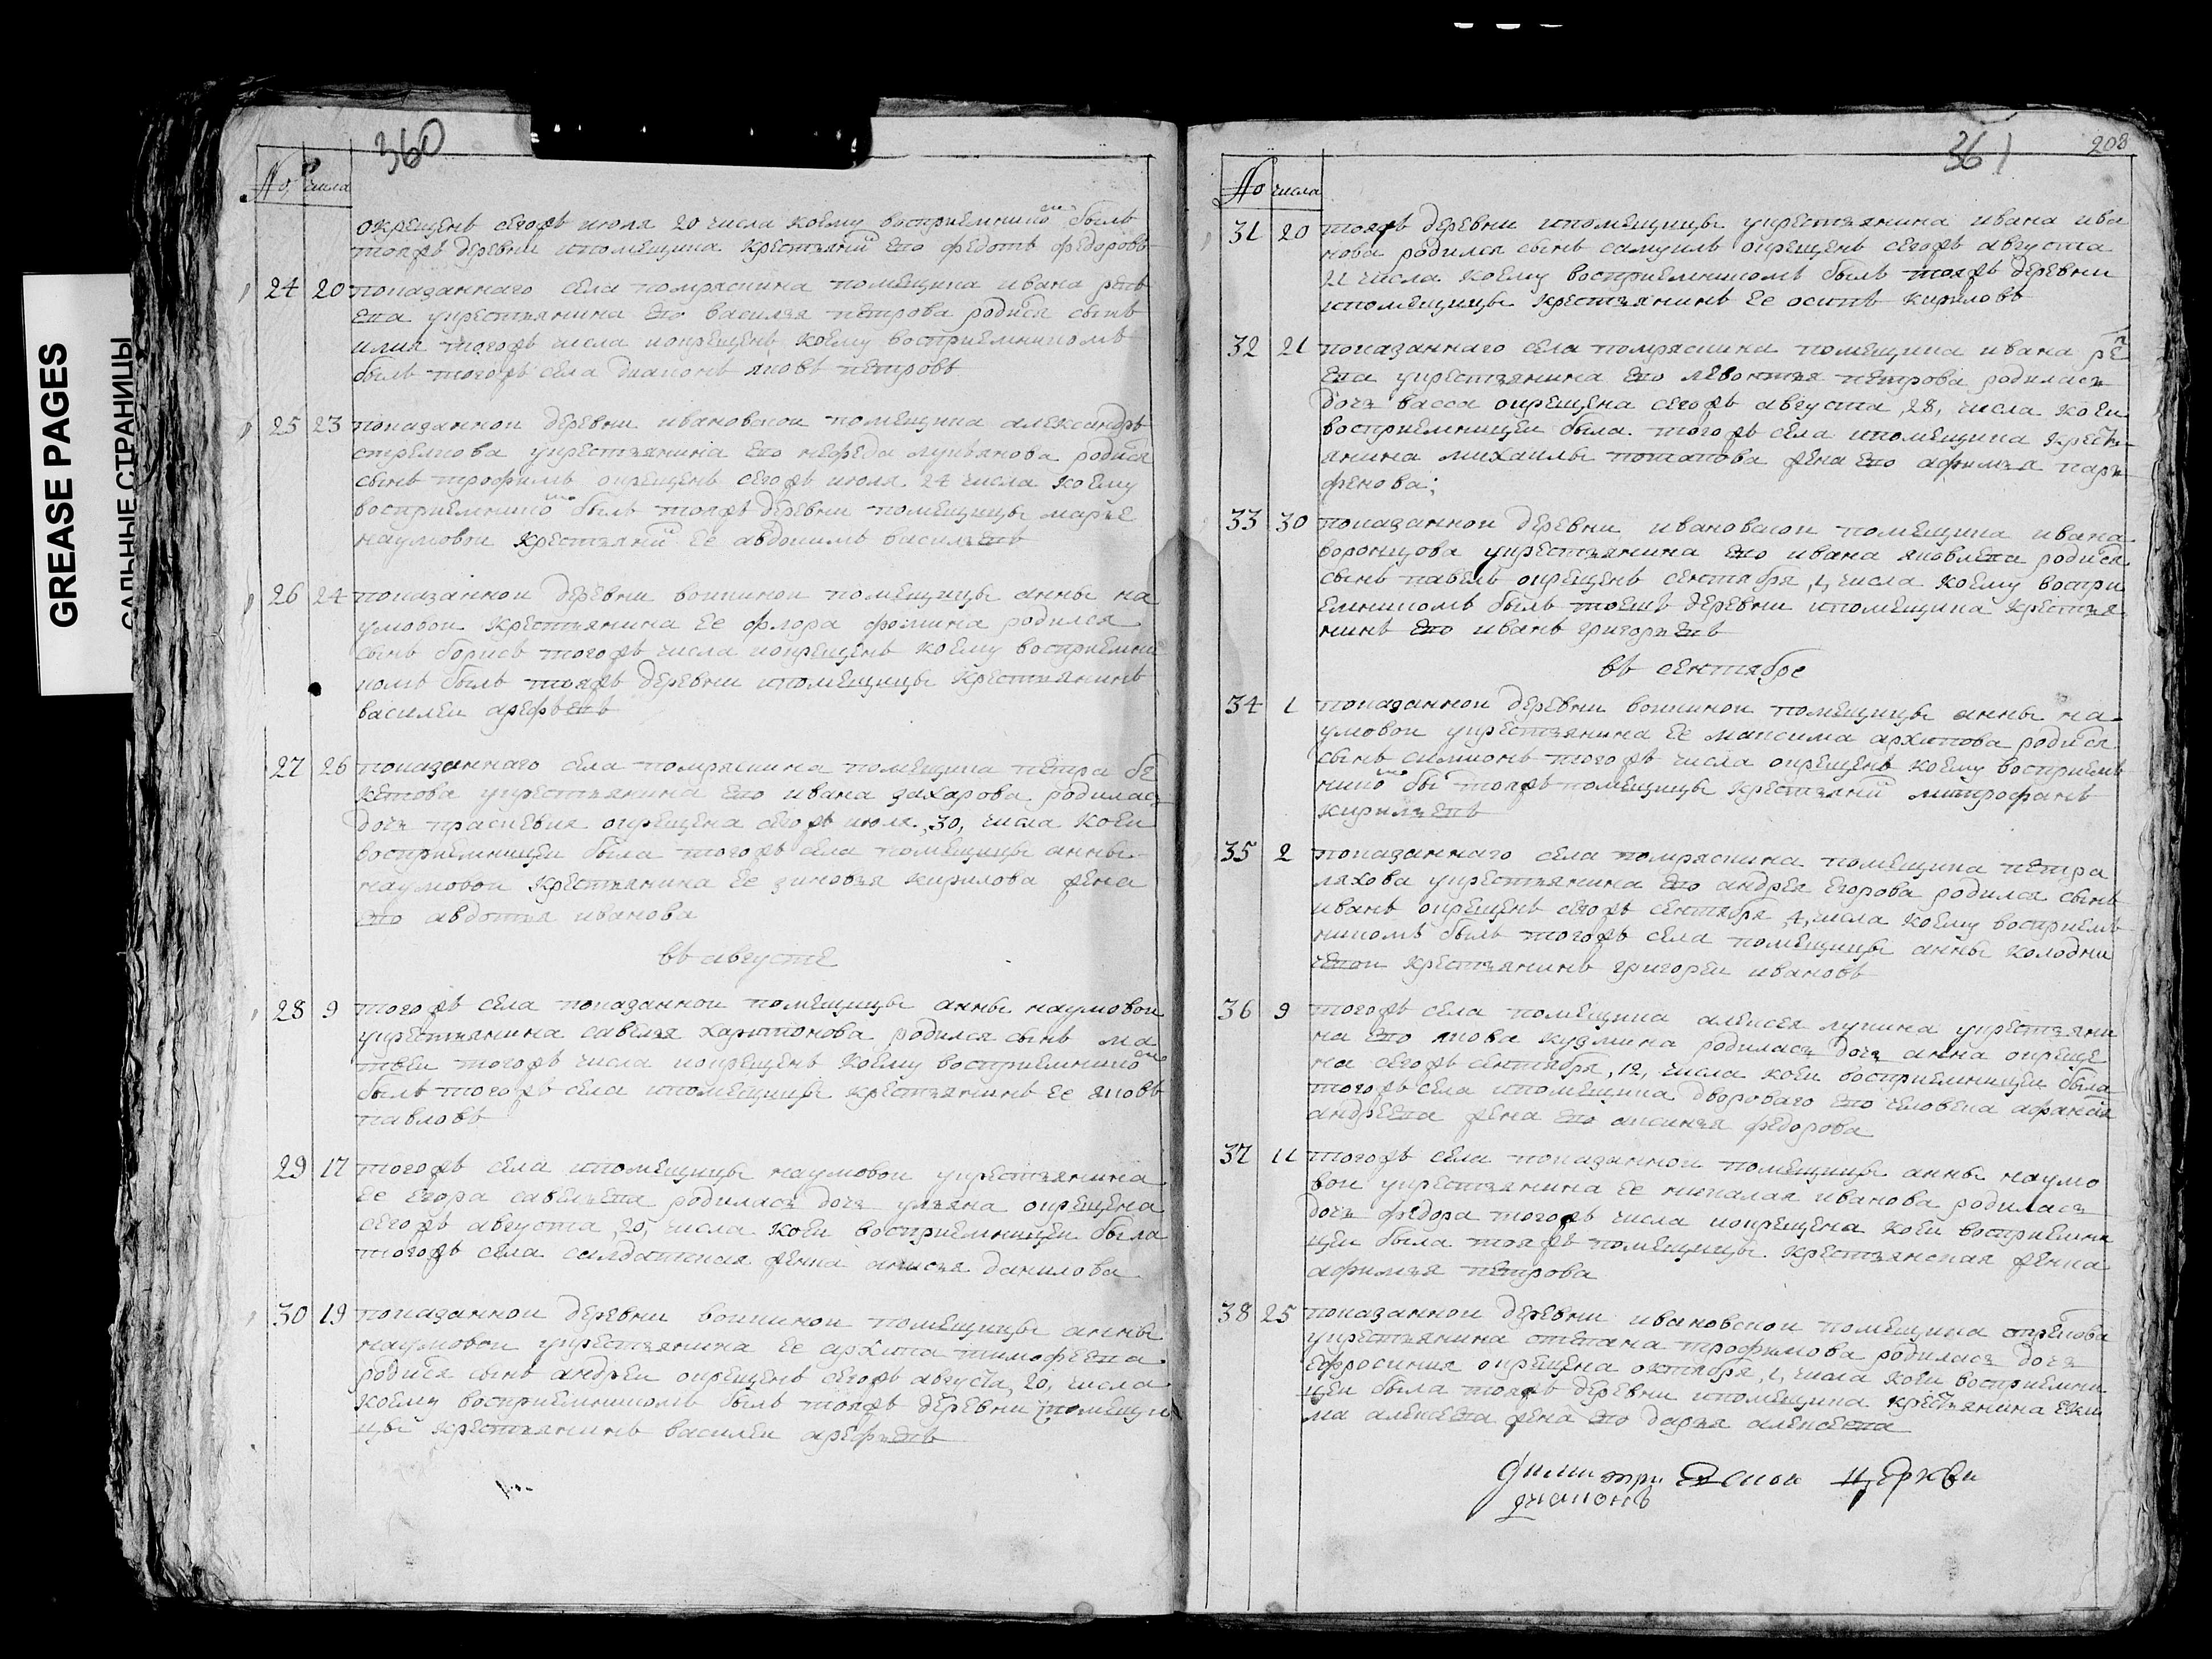 GREASE PAGES
САЛЬНЫЕ СТРАНИЦЫ
360
№ числа
окрещенъ сегожъ июля 20 числа коему восприемникомъ былъ
тояжъ деревни ипомещика крестьянинъ ево федотъ федоровъ
24 20 показаннаго села помряскина помещика ивана
ева укрестьянина ево василья петрова родися сынъ
илия тогожъ числа иокрещенъ коему восприемникомъ
былъ тогожъ села диаконъ яковъ петровъ
25 23 показаннои деревни ивановскои помещика александръ
стрелкова укрестьянина ево нефеда лукьянова родися
сынъ трофимъ окрещенъ сегожъ июля 24 числа коему
восприемникомъ былъ тояжъ деревни помещицы марье
наумовои крестьянинъ ее авдокимъ васильевъ
26 24 показаннои деревни помещицы анны на
умовои крестьянина ее флора фомина родился
сынъ борисъ тогожъ числа иокрещенъ коему восприемни
комъ былъ тояжъ деревни ипомещицы крестьянинъ
василеи арефьевъ
27 26 показаннаго села помряскина помещика петра бе
кетова укрестьянина ево ивана захарова родилась
дочь праскевия окрещена сегожъ июля, 30, числа коеи
восприемницеи была тогожъ села помещицы анны
наумовои крестьянина ее зиновья кирилова жена
ево авдотья иванова
въ августе
28 9 тогожъ села показаннои помещицы анны наумовои
укрестьянина савелья харитонова родился сынъ ма
твеи тогожъ числа иокрещенъ коему восприемникомъ
былъ тогожъ села ипомещицы крестьянинъ ее яковъ
павловъ
29 17 тогожъ села ипомещицы наумовои укрестьянина
ее егора савельева родилась дочь ульяна окрещена
сегожъ августа, 20, числа коеи восприемницеи была
тогожъ села салдатская женка анисья данилова
30 19 показаннои деревни помещицы анны
наумовои укрестьянина ее архипа тимофеева
родися сынъ андреи окрещенъ сегожъ августа, 20, числа
коему восприемникомъ былъ тояжъ деревни ипомещи
цы крестьянинъ василеи арефьевъ
361
208
№ числа
31 20 тояжъ деревни ипомещицы укрестьянина ивана ива
нова родился сынъ самуилъ окрещенъ сегожъ августа
21 числа коему восприемникомъ былъ тояжъ деревни
ипомещицы крестьянинъ ее осипъ кириловъ
32 21 показаннаго села помряскина помещика ивана
ева укрестьянина ево левонтья петрова родилась
дочь васса окрещена сегожъ августа, 28, числа коеи
восприемницеи была тогожъ села ипомещика кресть
янина михаилы потапова жена ево афимья пар
фенова;
33 30 показаннои деревни ивановскои помещика ивана
воронцова укрестьянина ево ивана яковлева родися
сынъ павелъ окрещенъ сентября, 1, числа коему воспри
емникомъ былъ тоежъ деревни ипомещика крестья
нинъ ево иванъ григорьевъ
въ сентябре
34 1 показаннои деревни помещицы анны на
умовои укрестьянина ее максима архипова родися
сынъ симионъ тогожъ числа окрещенъ коему восприем
никомъ бы тояжъ помещицы крестьянинъ митрофанъ
кирильевъ
35 2 показаннаго села помряскина помещика петра
ляхова укрестьянина ево андрея егорова родился сынъ
иванъ окрещенъ сегожъ сентября, 4, числа коему восприем
никомъ былъ тогожъ села помещицы анны колодни
чевои крестьянинъ григореи ивановъ
36 9 тогожъ села помещика алексея лупина укрестьяни
на ево якова кузмина родилась дочь анна окреще
на сегожъ сентября, 12, числа коеи восприемницеи была
тогожъ села ипомещика двороваго ево человека афанасія
андреева жена ево аксинья федорова
37 11 тогожъ села показаннои помещицы анны наумо
вои укрестьянина ее николая иванова родилась
дочь федора тогожъ числа иокрещена коеи восприемни
цеи была тояжъ помещицы крестьянская женка
афимья петрова
38 25 показаннои деревни ивановскои помещика стрелкова
укрестьянина степана трофимова родилась дочь
ефросиния окрещена октября, 1, числа коеи восприемни
цеи была тояжъ деревни ипомещика крестьянина еки
ма алексеева жена ево дарья алексеева
церкви
диаконъ